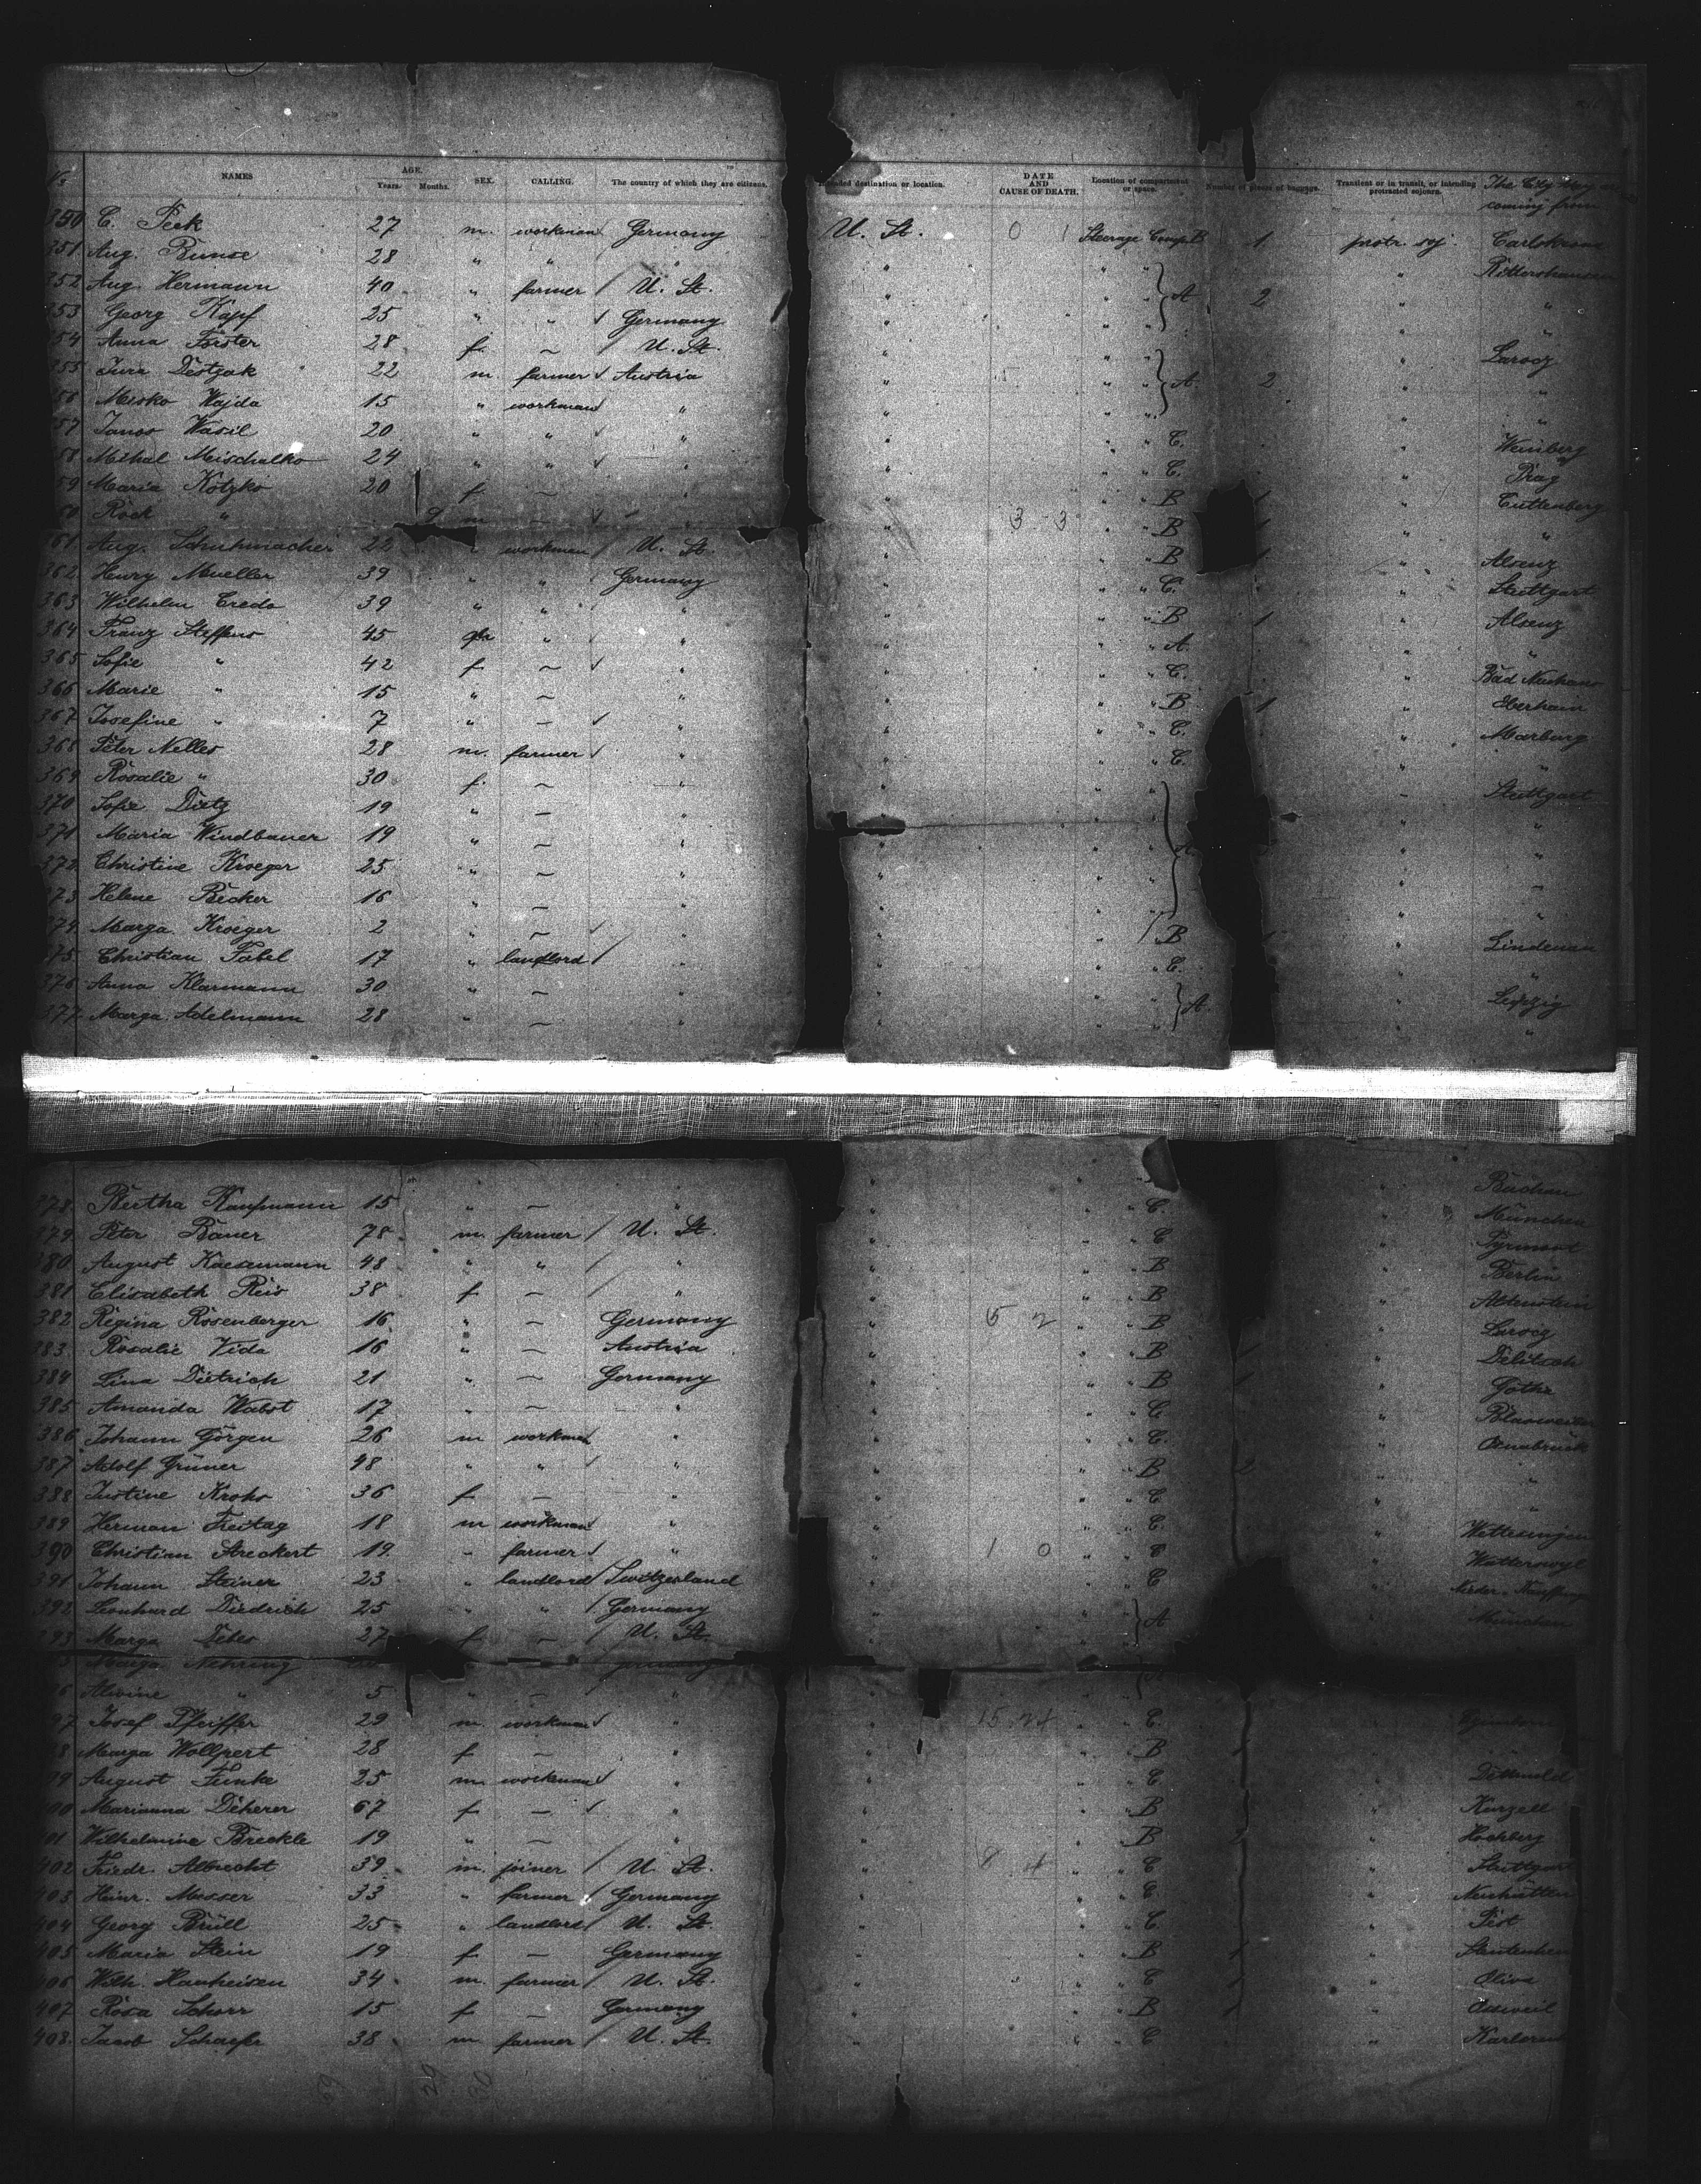 No NAMES AGE. Years. Months. SEX. CALLING. The country of which they are citizens. Intended destination or location. DATE AND CAUSE OF DEATH. Location of compartment or space. Number of pieces of baggage. Transient or in transit, or intending protracted sojourn. The City they are coming from
350 C. Peck 27 m. workman Germany U. St. 0 1 Steerage Comp. B 1 protr. soj. Carlskrona
351 Aug. Bunse 28 " " " " " " " Rittershausen
352 Aug. Hermann 40 " farmer / U. St. " " " A 2 " "
353 Georg Kapf 25 " " √ Germany " " " " "
354 Anna Forster 28 f. — / U. St. " " " " Larocz
355 Jura Destzak 22 m. farmer √ Austria " " " A. 2 " "
356 Misko Wajda 15 " workman √ " " " " " "
357 Janos Wasil 20 " " √ " " " " C. " Weinberg
358 Mihal Mischalko 24 " " √ " " " " C. " Prag
359 Maria Kotzko 20 f — " " " " B 1 " Cuttenberg
360 Rock " 9 m — √ " 3 3 " " B 1 " "
361 Aug. Schuhmacher 22 " workman / U. St. " " " B 1 " Alsenz
362 Henry Mueller 39 " " Germany " " " C. " Stuttgart
363 Wilhelm Credo 39 " " " " " " B 1 " Alsenz
364 Franz Steffens 45 " √ " " " " A. " "
365 Sofie " 42 f — √ " " " " C. " Bad Neuhaus
366 Marie " 15 " — " " " " B 1 "
367 Josefine " 7 " — √ " " " " C. " Marburg
368 Peter Nelles 28 m. farmer √ " " " " C. " "
369 Rosalie " 30 f. — " " " " " Stuttgart
370 Sofie Dietz 19 " — " " " " " "
371 Maria Windbauer 19 " — " " " " " "
372 Christine Kroeger 25 " — " " " " " "
373 Helene Becker 16 " — " " " " " "
374 Marga. Kroeger 2 " — √ " " " " B " Lindenau
375 Christian Fabel 17 " landlord / " " " " C. " "
376 Anna Klarmann 30 " — " " " " A. " Leipzig
377 Marga. Adelmann 28 " — " " " " " "
378 Bertha Kaufmann 15 " — " " " " C. " Buchau
379 Peter Bauer 78 m. farmer / U. St. " " " C " München
380 August Kaesemann 48 " " / " " " " B " Pyrmont
381 Elisabeth Reis 38 f — / " " " " B " Berlin
382 Regina Rosenberger 16 " — Germany " 5 2 " " B " Altenstein
383 Rosalie Vida 16 " — Austria " " " B 1 " Larocz
384 Lina Dietrich 21 " — Germany " " " B 1 " Delitsch
385 Amanda Wabst 17 " — " " " " C. " Gotha
386 Johann Görgen 26 m workman " " " " C. "
387 Adolf Grüner 48 " " √ " " " " B 2 " Osnabrück
388 Justine Krohs 36 f — " " " " C " "
389 Herman Freitag 18 m workman " " " " C. " "
390 Christian Streckert 19. " farmer √ " " 1 0 " " C " Wettesingen
391 Johann Steiner 23 " landlord / Switzerland " " " C " Watterswyl
392 Leonhard Diedrich 25 " " / Germany " " " A "
393 Marga Debes 27 f — / U. St. " " München
Marga Nehring
396 Alwine " 5 " — " " "
397 Josef Pfeiffer 29 m. workman √ " " 15 24 " " C. "
398 Marga Wollpert 28 f — " " " " B 1 "
399 August Funke 25 m. workman √ " " " " C " Detmold
400 Marianna Deherer 67 f — √ " " " " B 2 " Kurzell
401 Wilhelmine Breckle 19 " — " " " " B 2 " Hochberg
402 Friedr. Albrecht 39 m. joiner / U. St. " 8 4 " " C " Stuttgart
403 Heinr. Messer 33 " farmer √ Germany " " " C " Neuhütten
404 Georg Brüll 25 " landlord / U. St. " " " C. " Pest
405 Maria Stein 19 f — Germany " " " B 1 "
406 Wilh. Hanheisen 34 m. farmer / U. St. " " " C 1 " Oliva
407 Rosa Schorr 15 f — Germany " " " B 1 " Ossweil
408. Jacob Schaefer 38 m. farmer / U. St. " " " C "